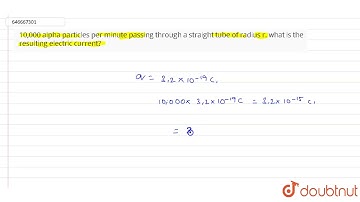 646667301
10,000 alpha particles per minute passing through a straight tube of radius r. what is the
resulting electric current?
q = 3.2 × 10⁻¹⁹ C.
10,000 × 3.2 × 10⁻¹⁹ C = 3.2 × 10⁻¹⁵ C.
= 3
doubtnut